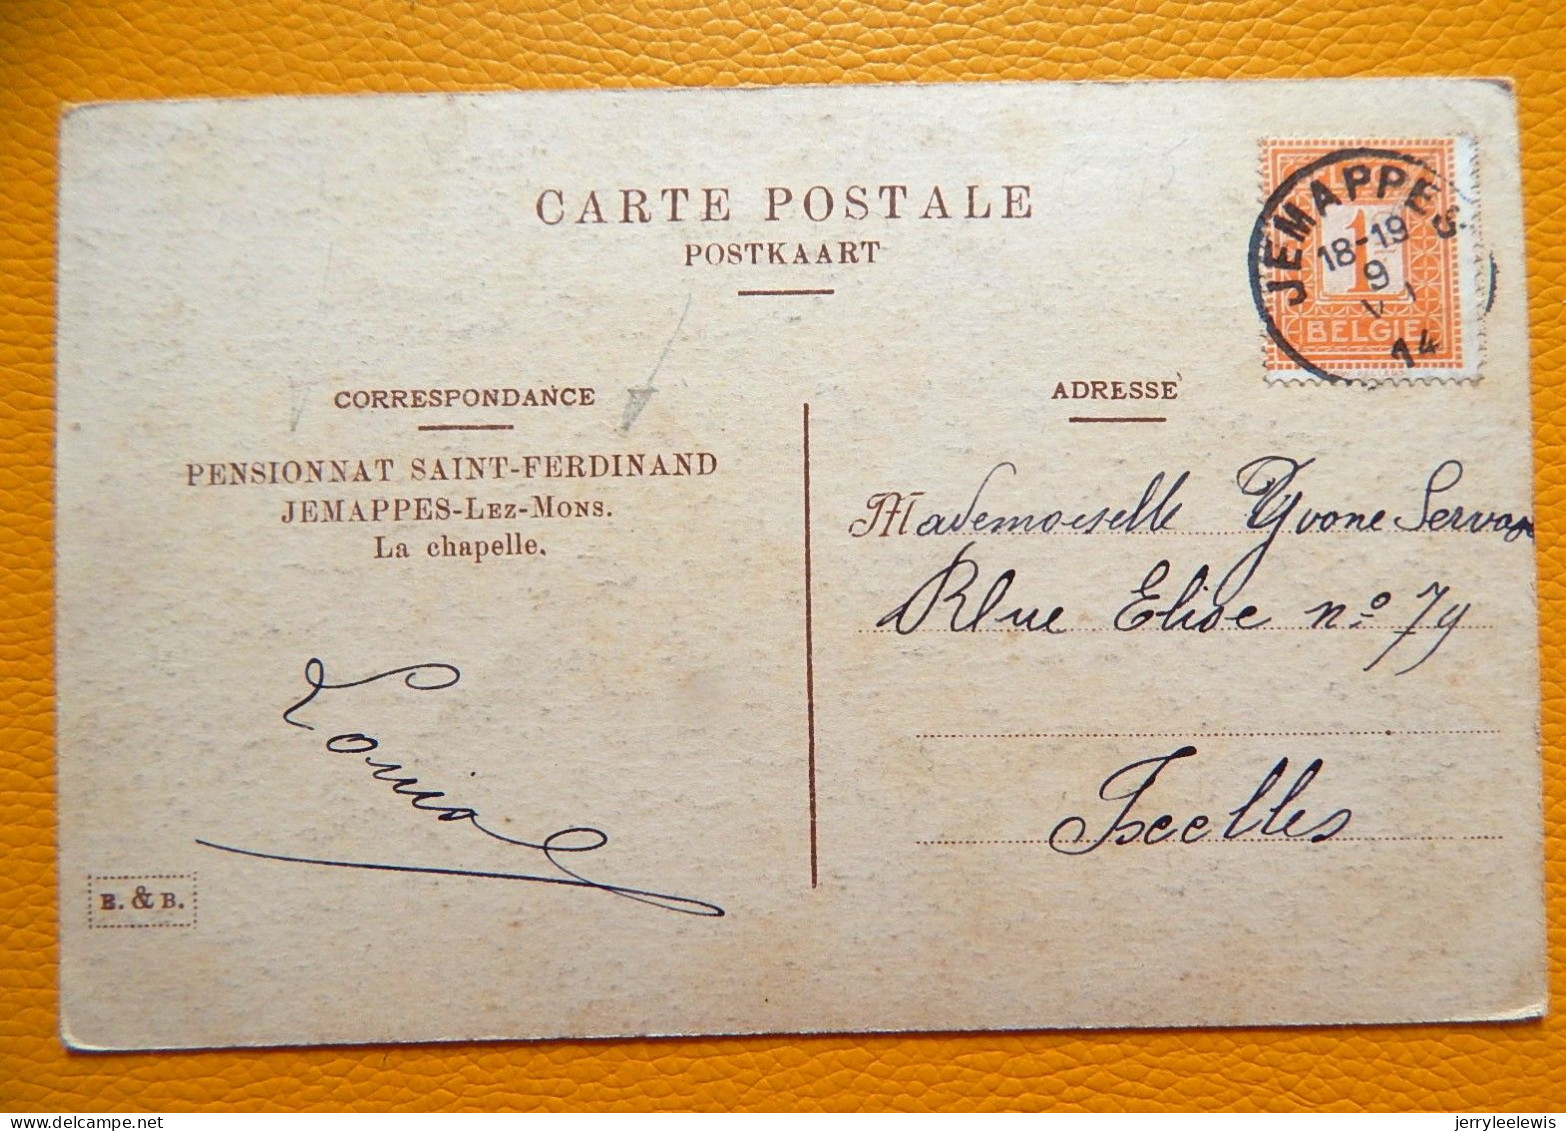 CARTE POSTALE
POSTKAART
CORRESPONDANCE
ADRESSE
PENSIONNAT SAINT-FERDINAND
JEMAPPES-LEZ-MONS.
La chapelle.
Mademoiselle Yvone Servais
Rue Elise nº 79
Ixelles
Louisa
E. & B.
JEMAPPES
18-19
9
14
1
BELGIE
jerryleelewis